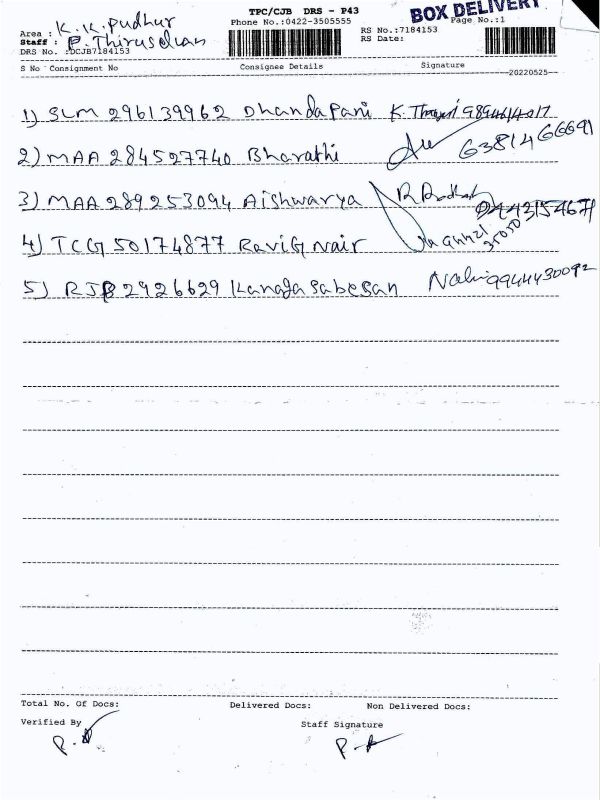 TPC/CJB DRS - P43
BOX DELIVERY
Phone No.:0422-3505555
Page No.:1
Area : K.K.Pudhur
RS No.:7184153
Staff : P. Thiruselvan
RS Date:
DRS No. :DCJB7184153
S No Consignment No Consignee Details Signature
20220525
1) SLM 296139962 Dhandapani K.
2) MAA 284527740 Bharathi 6381466691
3) MAA 289253094 Aishwarya
4) TCG 50174877 Ravi G Nair
5) RJB 2926629 Kanagasabesan 9944430092
Total No. Of Docs: Delivered Docs: Non Delivered Docs:
Verified By Staff Signature